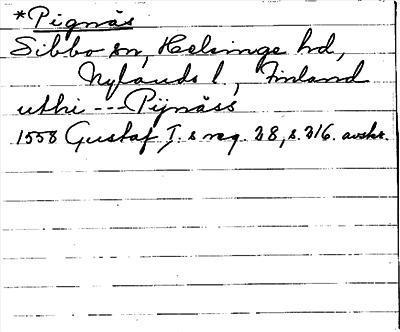 *Pignäs
Sibbo sn, Helsinge hd,
Nylands l., Finland
uthi --- Pijnäss
1558 Gustaf I.s reg. 28, s. 216. avskr.